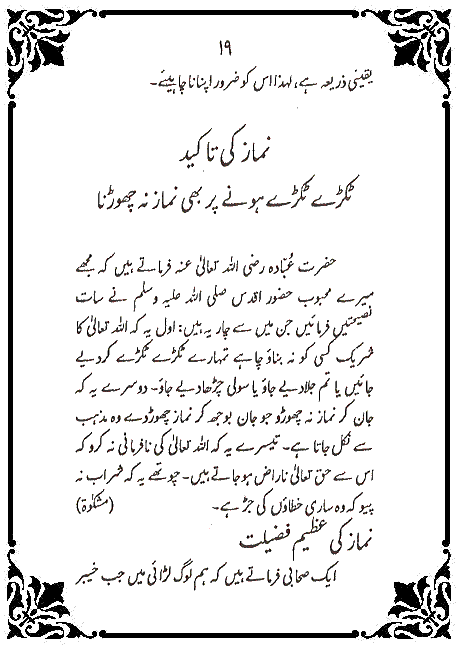 ۱۹
یقینی ذریعہ ہے، لہذا اس کو ضرور اپنانا چاہیئے۔
نماز کی تاکید
ٹکڑے ٹکڑے ہونے پر بھی نماز نہ چھوڑنا
حضرت عُبَادہ رضی اللہ تعالیٰ عنہ فرماتے ہیں کہ مجھے
میرے محبوب حضور اقدس صلی اللہ علیہ وسلم نے سات
نصیحتیں فرمائیں جن میں سے چار یہ ہیں: اول یہ کہ اللہ تعالیٰ کا
شریک کسی کو نہ بناؤ چاہے تمہارے ٹکڑے ٹکڑے کردیے
جائیں یا تم جلا دیے جاؤ یا سولی چڑھا دیے جاؤ۔ دوسرے یہ کہ
جان کر نماز نہ چھوڑو جو جان بوجھ کر نماز چھوڑ دے وہ مذہب
سے نکل جاتا ہے۔ تیسرے یہ کہ اللہ تعالیٰ کی نافرمانی نہ کرو کہ
اس سے حق تعالیٰ ناراض ہو جاتے ہیں۔ چوتھے یہ کہ شراب نہ
پیو کہ وہ ساری خطاؤں کی جڑ ہے۔ (مشکوٰۃ)
نماز کی عظیم فضیلت
ایک صحابی فرماتے ہیں کہ ہم لوگ لڑائی میں جب خیبر